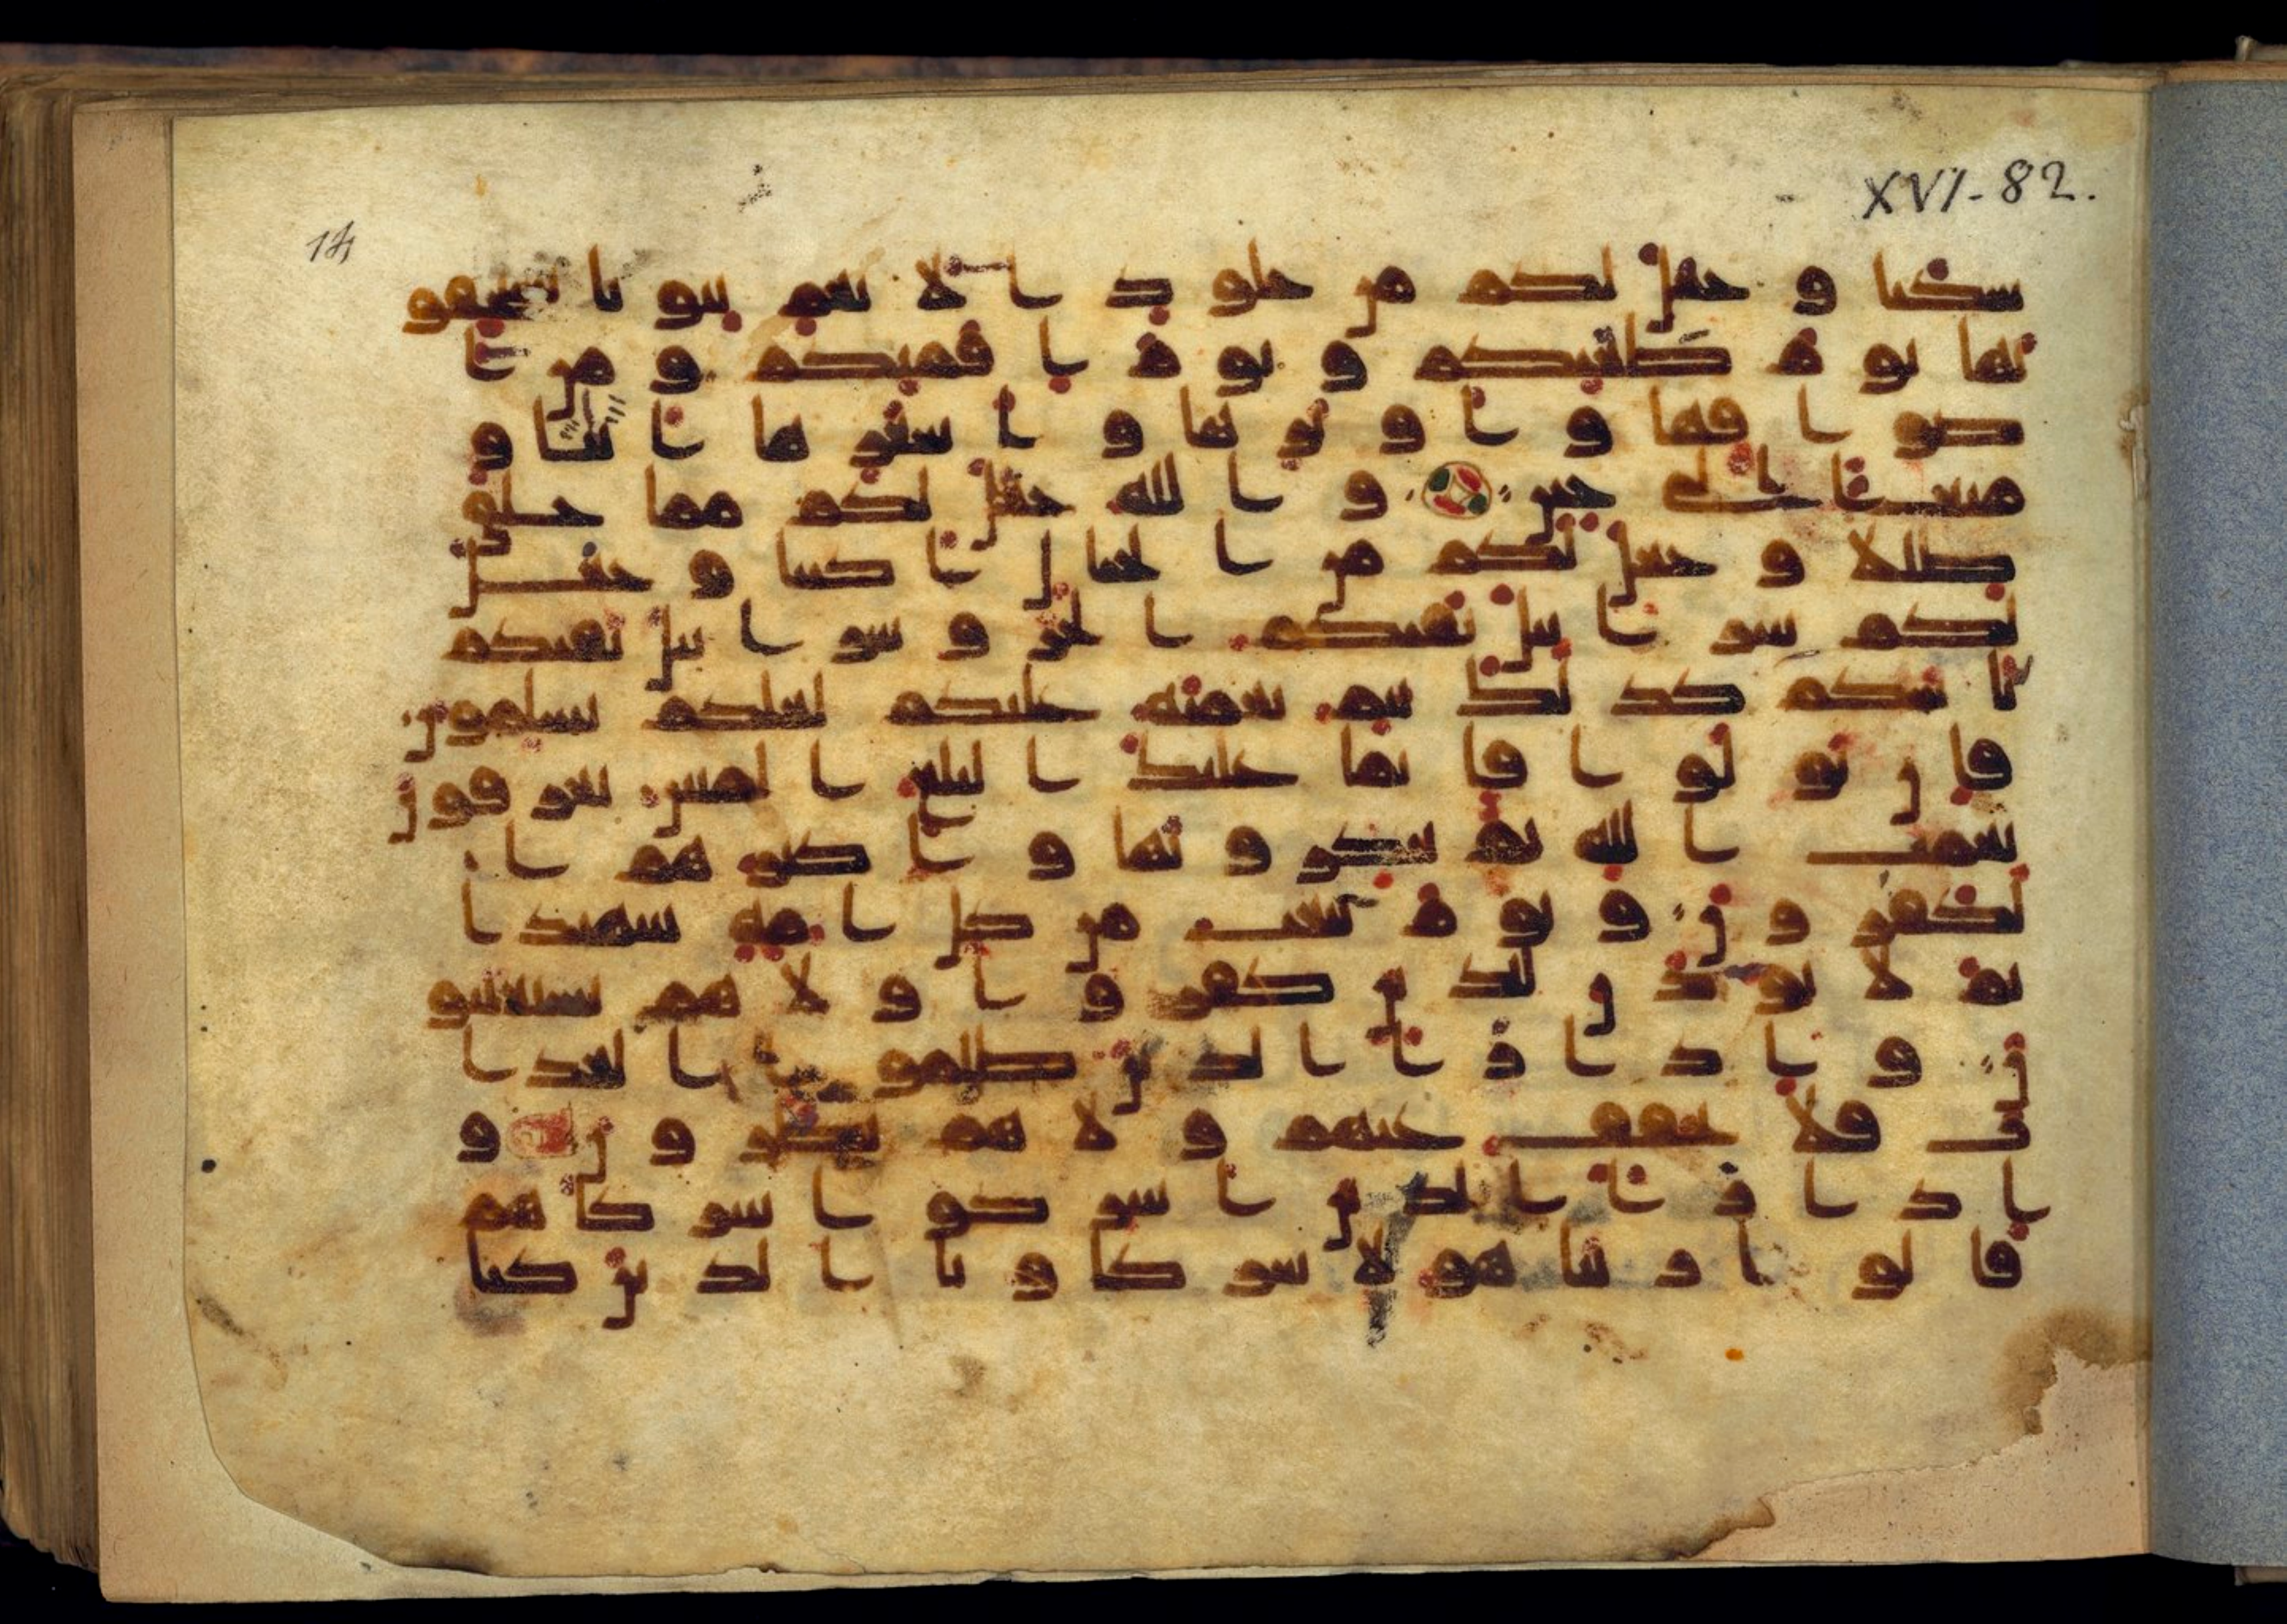 14
XVI-82.
سكنا و جعل لكم من جلود الانعم بيوتا تستخفو
نها يوم ظعنكم و يوم اقمتكم و من ا
صوافها و اوبرها و اشعرها اثثا و
متعا الى حين و الله جعل لكم مما خلق
ظللا و جعل لكم من الجبال اكننا و جعل
لكم سرابيل تقيكم الحر و سرابيل تقيكم
باسكم كذلك يتم نعمته عليكم لعلكم تسلمون
فان تولوا فانما عليك البلغ المبين يعرفون
نعمت الله ثم ينكرونها و اكثرهم ا
لكفرون و يوم نبعث من كل امة شهيدا
ثم لا يوذن للذين كفروا و لا هم يستعتبو
ن و اذا را الذين ظلموا العذا
ب فلا يخفف عنهم و لا هم ينظرون و
اذا را الذين اشركوا شركاهم
قالوا ربنا هولا شركاونا الذين كنا